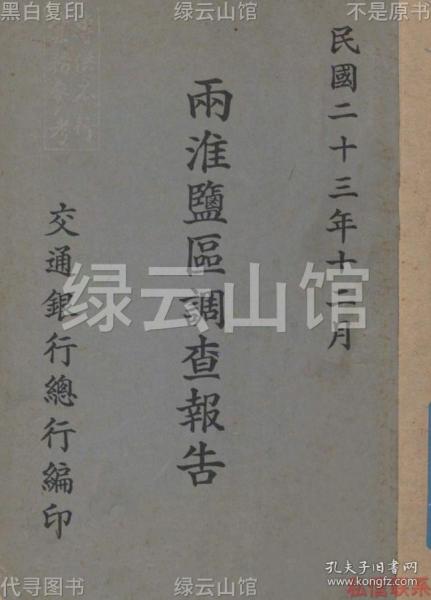 黑白复印
绿云山馆
不是原书
民國二十三年十二月
兩淮鹽區調查報告
交通銀行總行編印
绿云山馆
代寻图书
绿云山馆
孔夫子旧书网
www.kongfz.com
私信联系